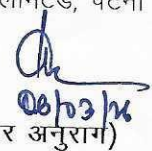 लिमिटेड, पटना
08/03/26
र अनुराग)